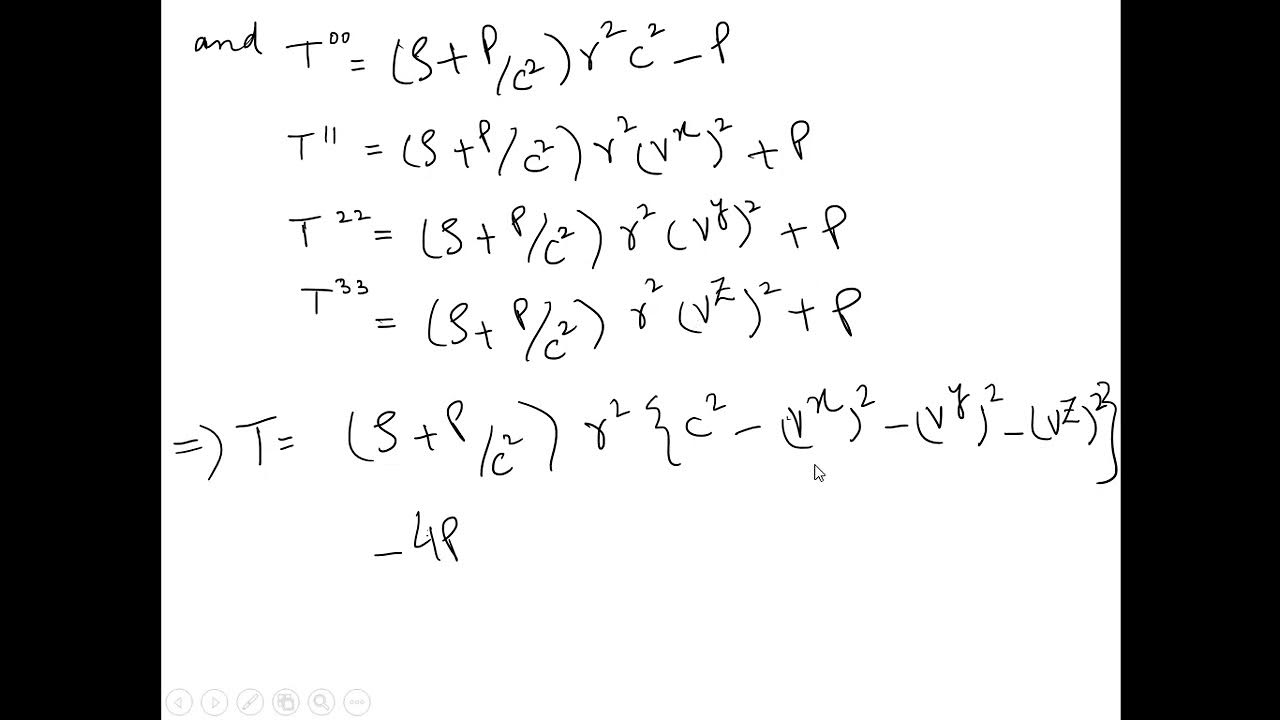 and T⁰⁰ = (ρ + P/c²) γ² c² − P
T¹¹ = (ρ + P/c²) γ² (vˣ)² + P
T²² = (ρ + P/c²) γ² (vʸ)² + P
T³³ = (ρ + P/c²) γ² (vᶻ)² + P
⇒) T = (ρ + P/c²) γ² {c² − (vˣ)² − (vʸ)² − (vᶻ)²}
− 4P